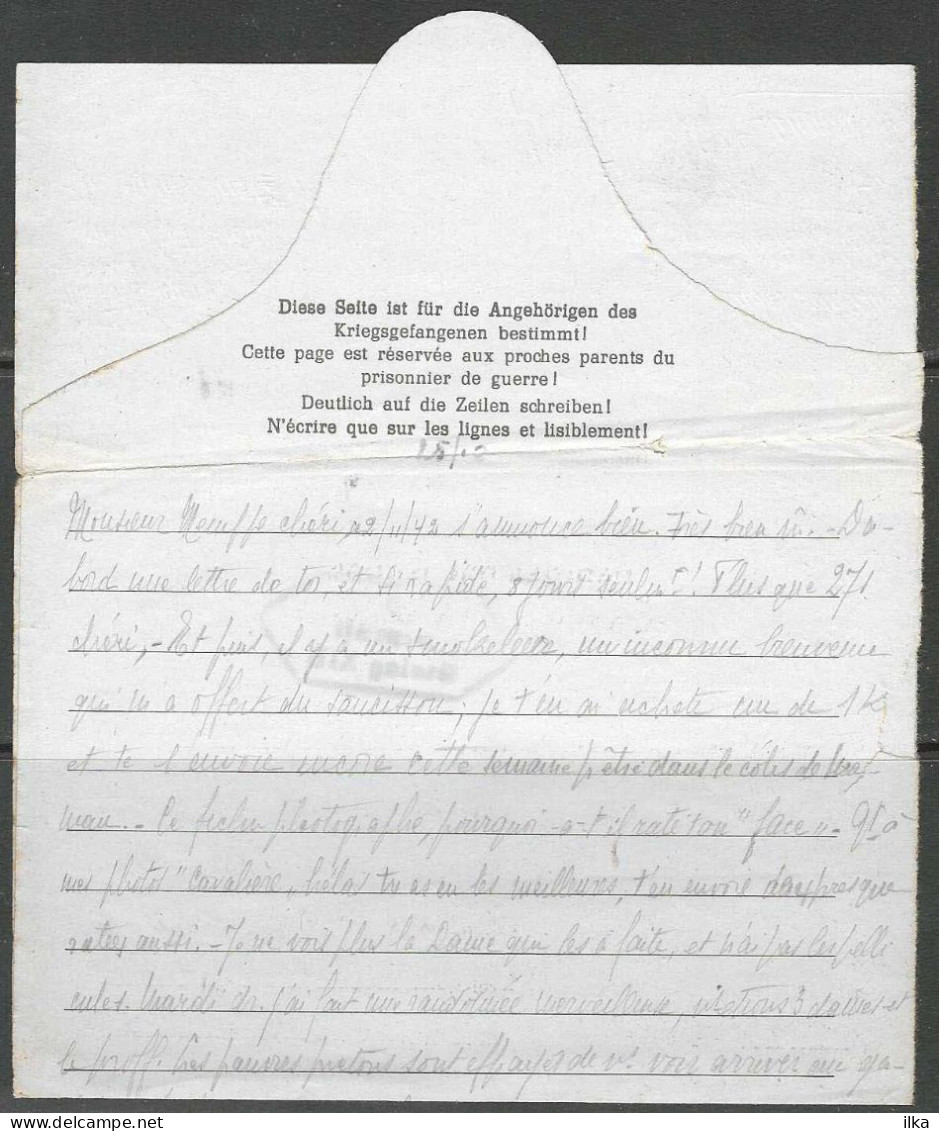 Diese Seite ist für die Angehörigen des
Kriegsgefangenen bestimmt!
Cette page est réservée aux proches parents du
prisonnier de guerre!
Deutlich auf die Zeilen schreiben!
N'écrire que sur les lignes et lisiblement!
Monsieur chéri, 22/11/42 s'annonce bien. Très bien m. - Da-
bord une lettre de toi, et si rapide, 8 jours seulemt! Plus que 271
chéri, - Et puis, il y a un un inconnu
qui m'a offert du saucisson; je t'en ai acheté un de 1k
et te l'envoie encore cette semaine p. être dans le colis de Ma-
man. - Ce fichu photographe, pourquoi a-t-il raté ton "face" -
mes photos "cavalière" hélas tu as eu les meilleures, t'en envoie presque
ratées aussi. - Je ne vois plus la Dame qui les a faite, et n'ai pas les pelli
cules. Mardi dr. j'ai fait une randonnée merveilleuse, ns étions 3 dames et
le proff. Les pauvres piétons sont effrayés de ns voir arriver au ga-
ilka